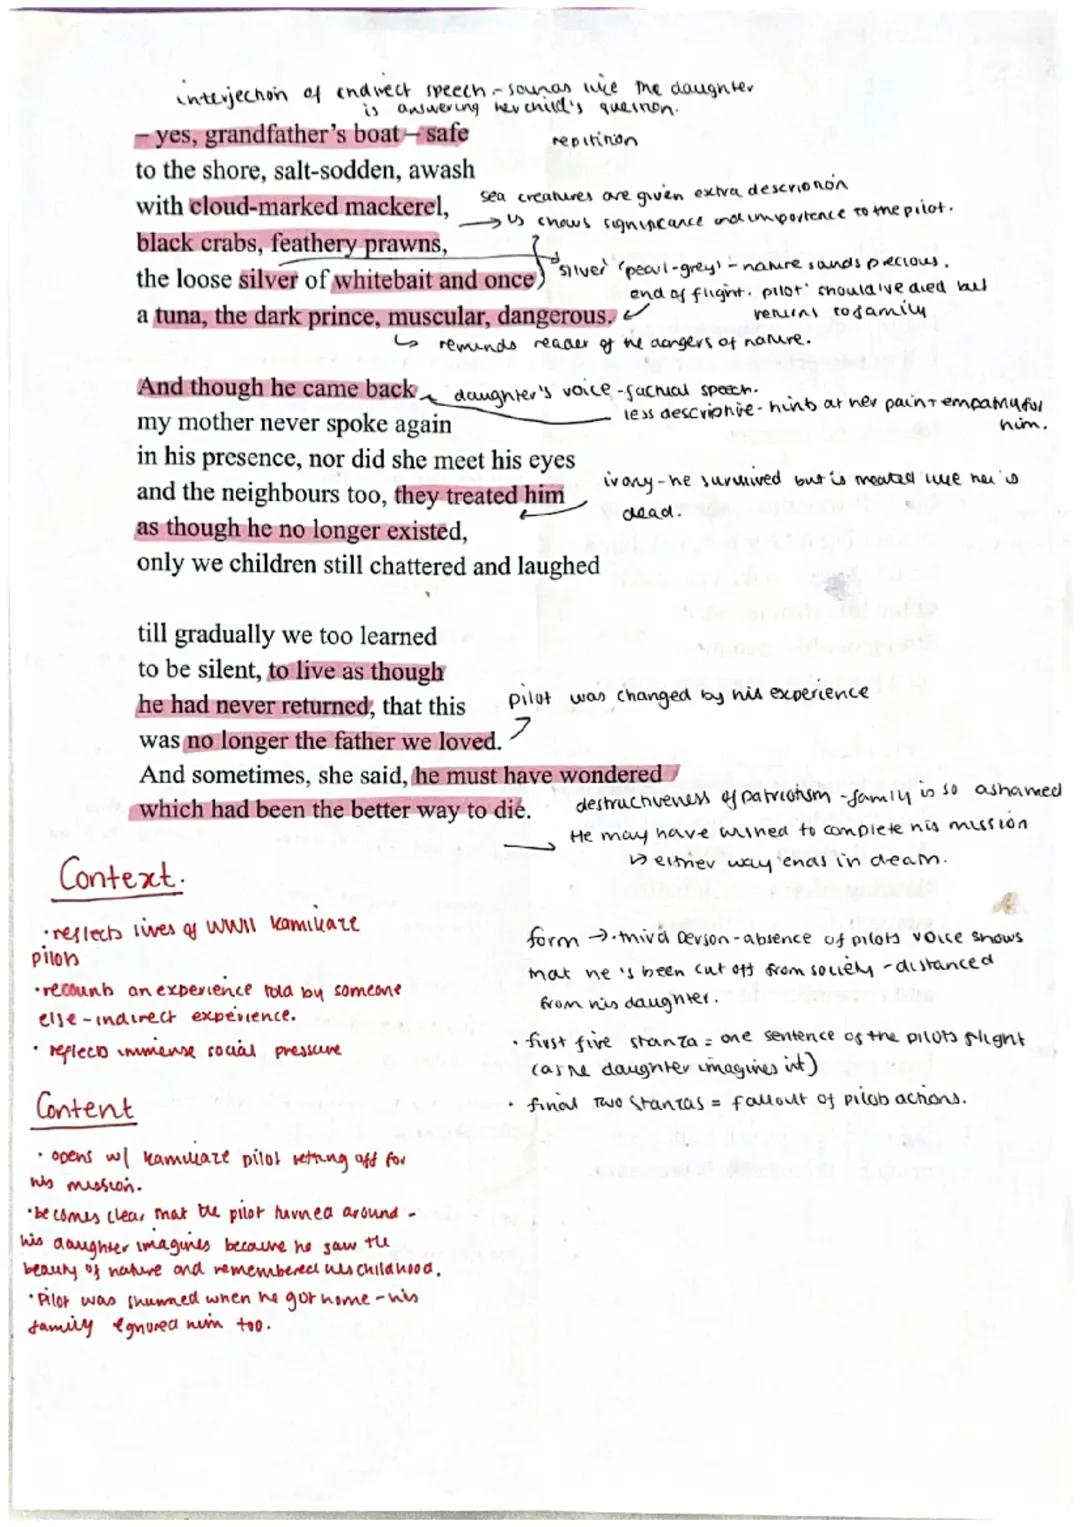 interjection of indirect speech - sounds like the daughter
is answering her child's question.
– yes, grandfather's boat – safe
repitition
to the shore, salt-sodden, awash
with cloud-marked mackerel,
sea creatures are given extra description
→ shows significance and importance to the pilot.
black crabs, feathery prawns,
the loose silver of whitebait and once
'silver' 'pearl-grey' - nature sounds precious.
a tuna, the dark prince, muscular, dangerous.
end of flight. pilot should've died but
returns to family
↳ reminds reader of the dangers of nature.
And though he came back
daughter's voice - factual speech.
less descriptive - hints at her pain + empathy for
him.
my mother never spoke again
in his presence, nor did she meet his eyes
and the neighbours too, they treated him
irony - he survived but is treated like he's
dead.
as though he no longer existed,
only we children still chattered and laughed
till gradually we too learned
to be silent, to live as though
he had never returned, that this
pilot was changed by his experience
was no longer the father we loved.
And sometimes, she said, he must have wondered
which had been the better way to die.
destructiveness of patriotism - family is so ashamed
→ He may have wished to complete his mission
↳ either way ends in death.
Context.
· reflects lives of WWII kamikaze
pilots
· recounts an experience told by someone
else - indirect experience.
· reflects immense social pressure
Content
· opens w/ kamikaze pilot setting off for
his mission.
· becomes clear that the pilot turned around -
his daughter imagines because he saw the
beauty of nature and remembered his childhood.
· Pilot was shunned when he got home - his
family ignored him too.
form → · third person - absence of pilots voice shows
that he's been cut off from society - distanced
from his daughter.
· first five stanza = one sentence of the pilots flight
(as the daughter imagines it)
· final two stanzas = fallout of pilots actions.